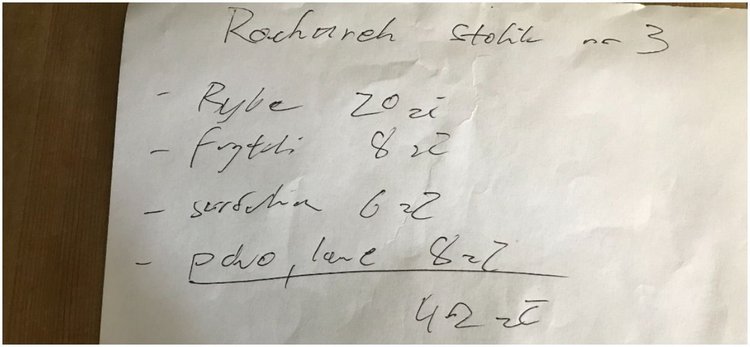 Rachunek stolik nr 3
- Ryba 20 zł
- Frytki 8 zł
- surówka 6 zł
- piwo, lane 8 zł
42 zł